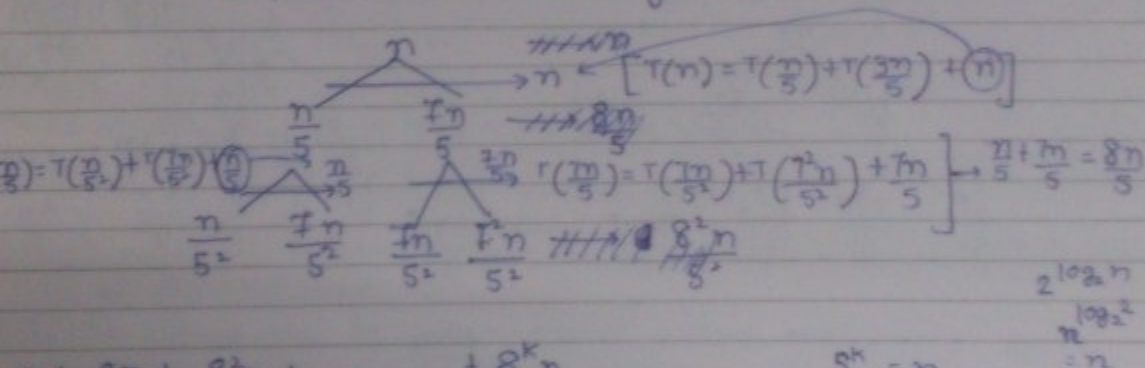 n → n [T(n) = T(n/5) + T(7n/5) + n]
n/5 7n/5
T(n/5²) + T(7n/5²) + n/5 n/5 7n/5 T(7n/5) = T(7n/5²) + T(7²n/5²) + 7n/5 ] → n/5 + 7n/5 = 8n/5
n/5² 7n/5² 7n/5² 7²n/5² 8²n/5²
2^log₂n
n^log₂2
= n